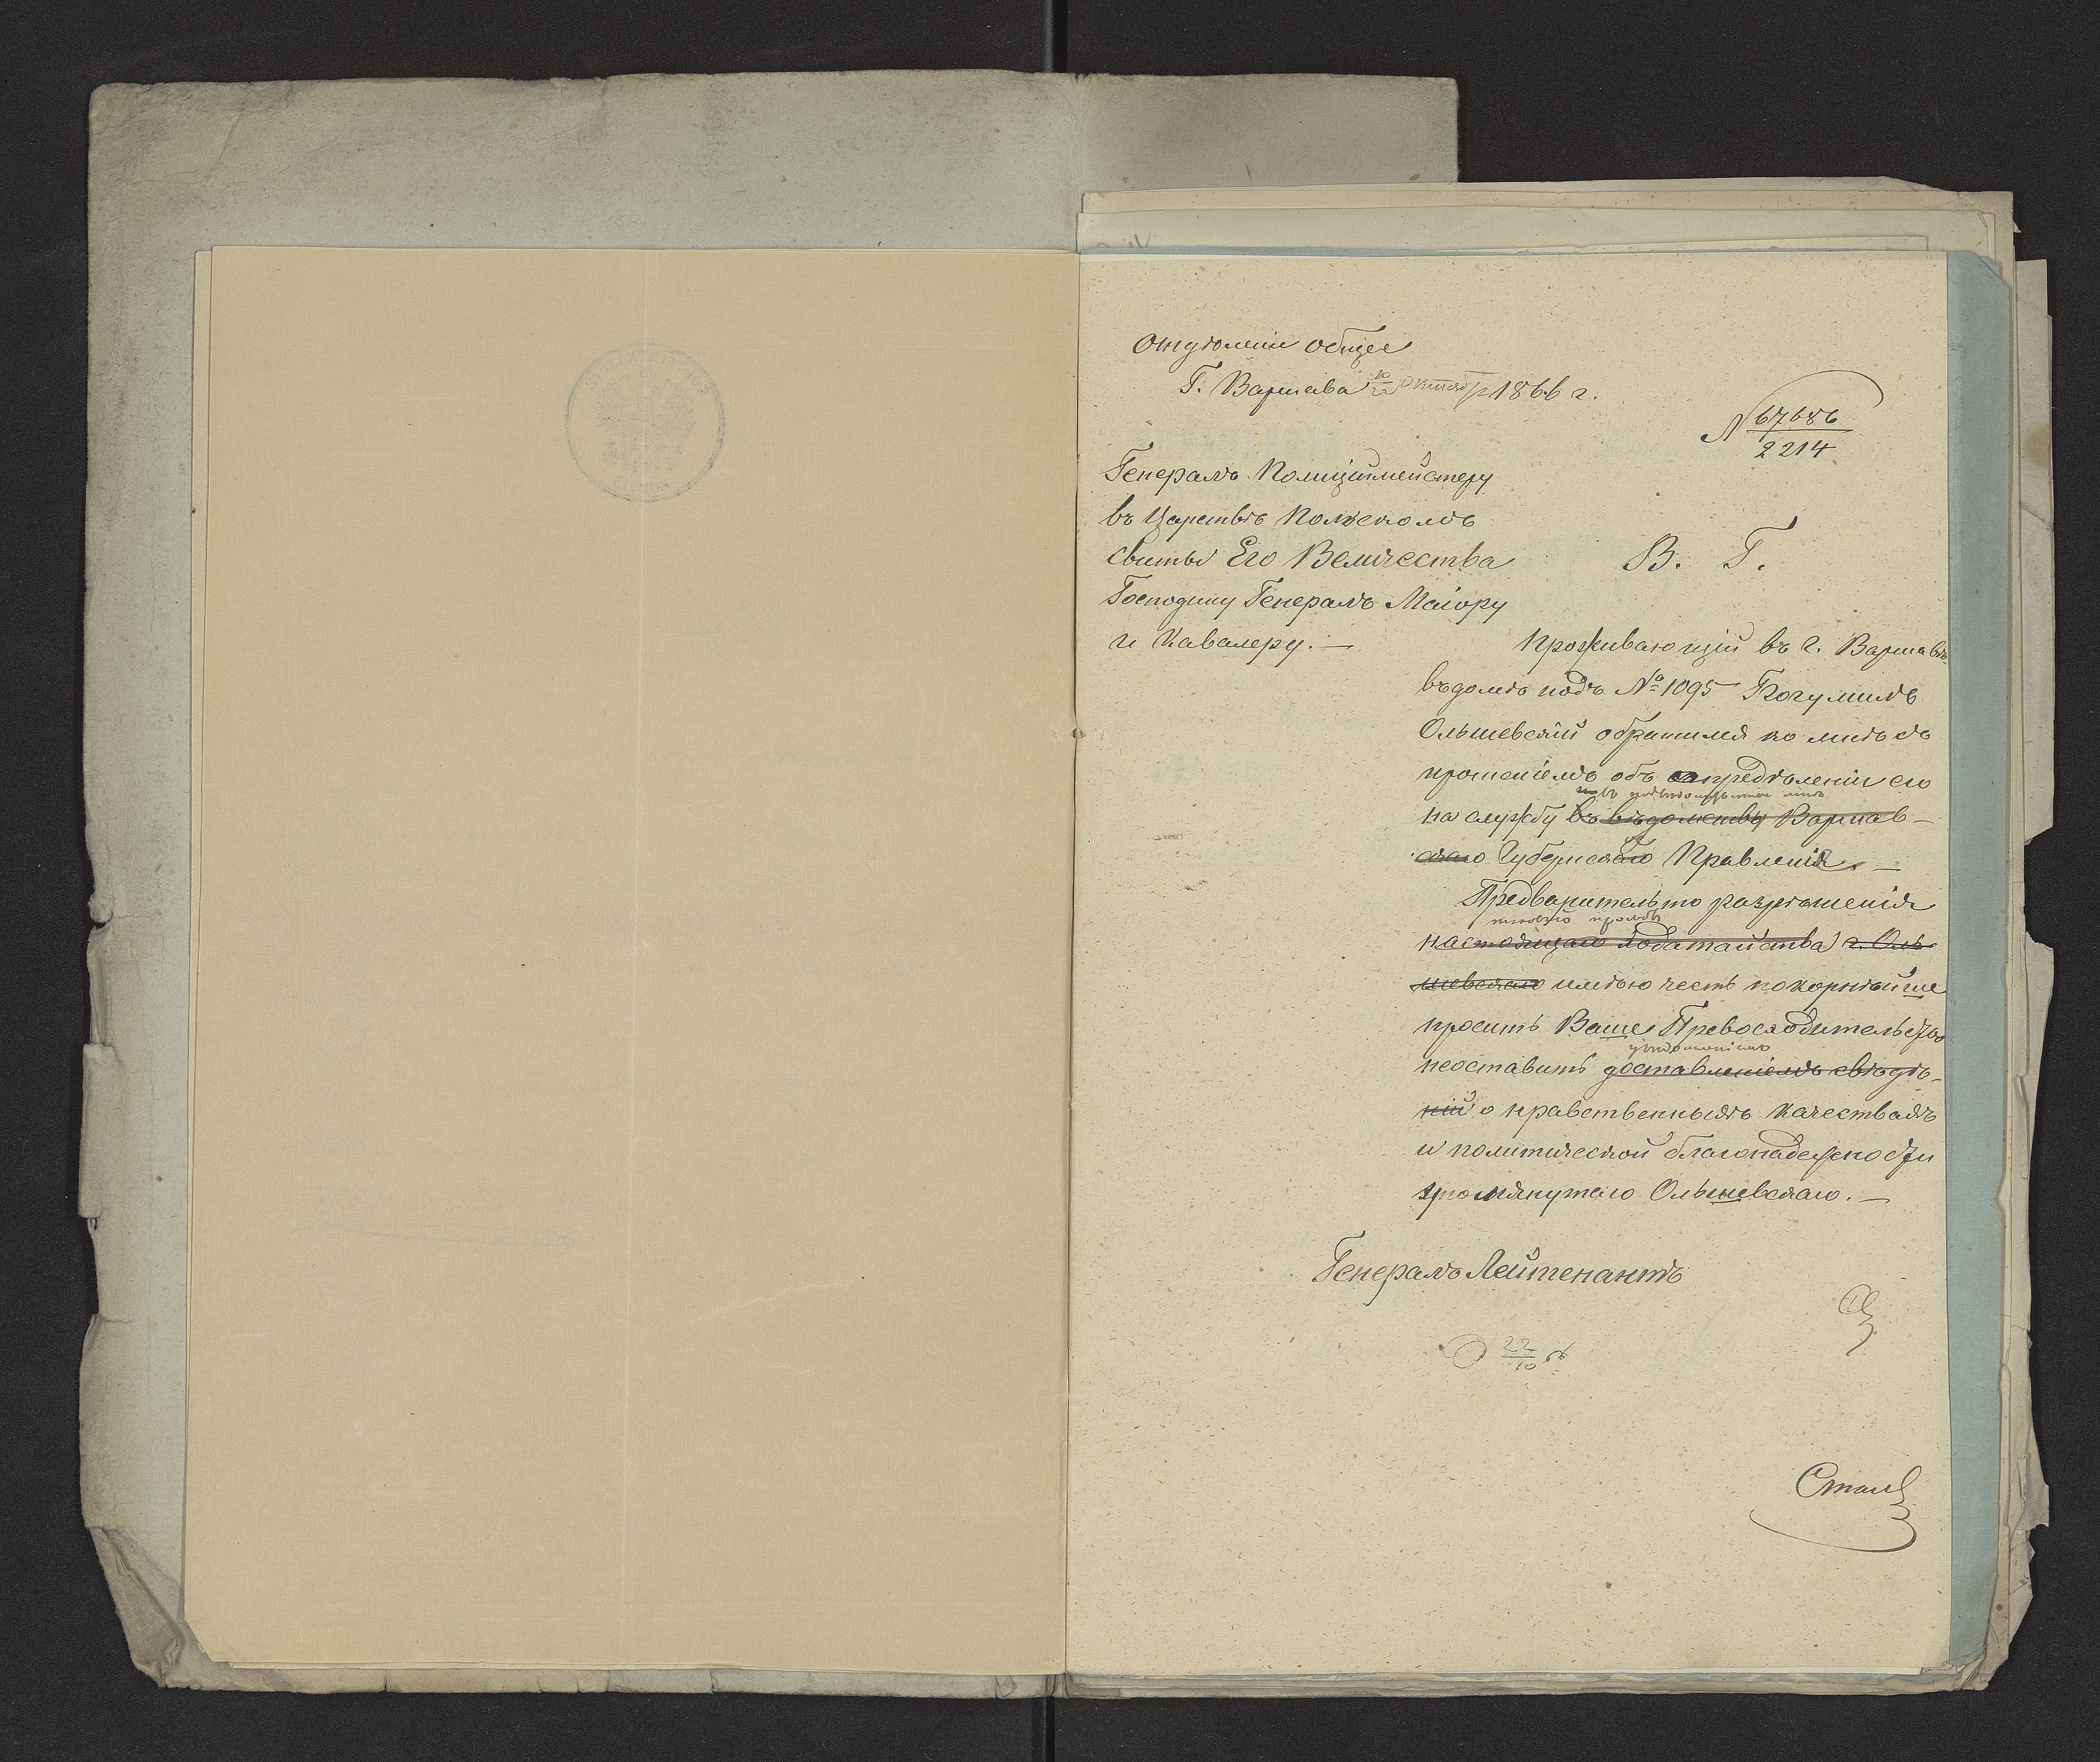 Отдѣленіе общее
Г. Варшава 10/22 Октяб 1866 г.
№ 67686/2214
Генералъ Полиціймейстеру
въ Царствѣ Польскомъ
Свиты Его Величества
Господину Генералъ Маіору
и Кавалеру. —
В. Г.
Проживающій въ г. Варшавѣ
въ домѣ подъ № 1095 Богумилъ
Ольшевскій обратился ко мнѣ съ
прошеніемъ объ опредѣленіи его
на службу въ вѣдомству Варшав-
скаго Губернскаго Правленія. —
Предварительно разрѣшенія
просьбы
настоящаго ходатайства г. Оль-
шевскаго имѣю честь покорнѣйше
просить Ваше Превосходительство
увѣдомленіемъ
неоставить доставленіемъ свѣдѣ-
ній о нравственныхъ качествахъ
и политической благонадежности
упомянутаго Ольшевскаго. —
Генералъ Лейтенантъ
22/10